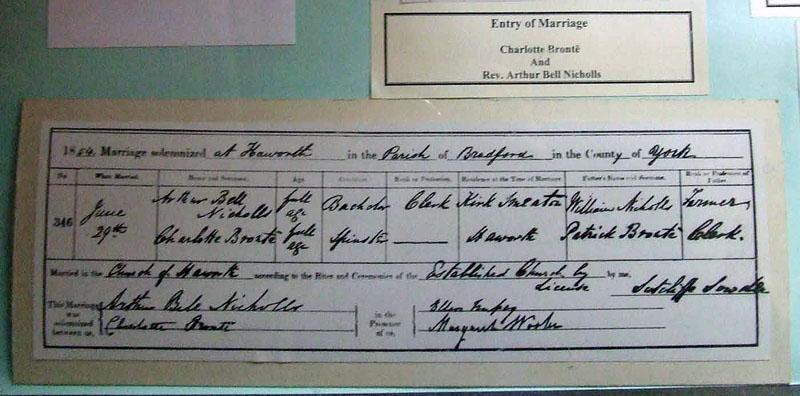 Entry of Marriage
Charlotte Brontë
And
Rev. Arthur Bell Nicholls
1854. Marriage solemnized at Haworth in the Parish of Bradford in the County of York
No When Married. Name and Surname. Age Condition Rank or Profession. Residence at the Time of Marriage Father's Name and Surname. Rank or Profession of Father.
346 June 29th Arthur Bell Nicholls full age Bachelor Clerk Kirk Smeaton William Nicholls Farmer
Charlotte Brontë full age Spinster —— Haworth Patrick Brontë Clerk.
Married in the Church of Haworth according to the Rites and Ceremonies of the Established Church by License by me, Sutcliffe Sowden
This Marriage was solemnized between us, Arthur Bell Nicholls in the Presence of us, Ellen Nussey
Charlotte Brontë Margaret Wooler